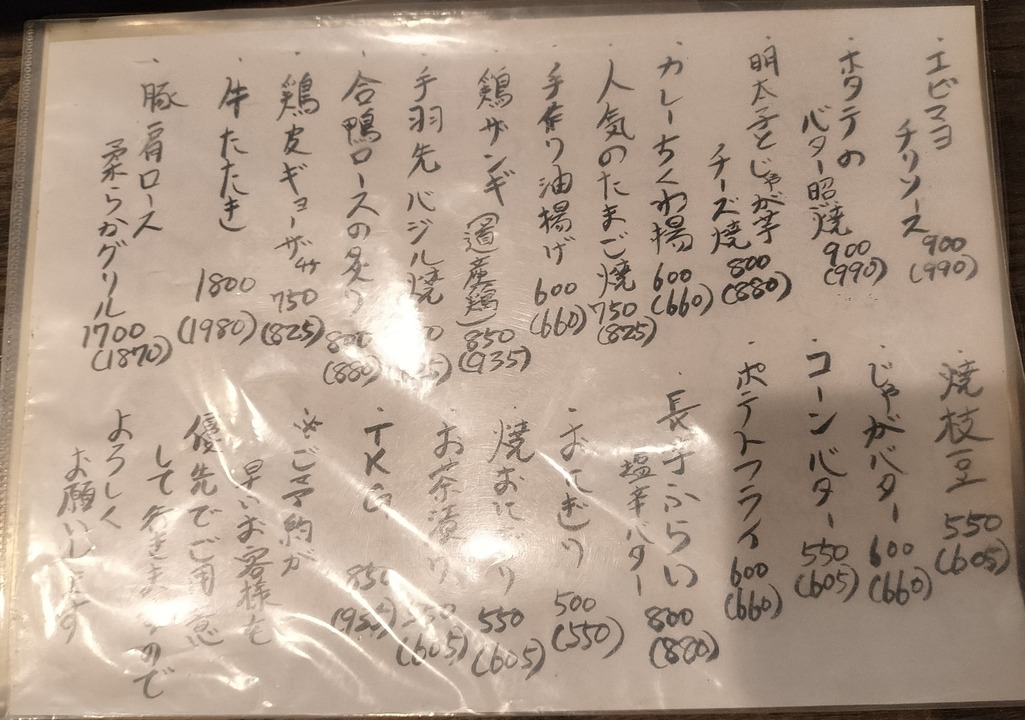 ・エビマヨ
チリソース
900
(990)
・ホタテの
バター照焼
900
(990)
・明太子とじゃが芋
チーズ焼
800
(880)
・カレーちくわ揚
600
(660)
・人気のたまご焼
750
(825)
・手作り油揚げ
600
(660)
・鶏ザンギ(道産鶏)
850
(935)
・手羽先バジル焼
・合鴨ロースの炙り
800
(880)
・鶏皮ギョーザ
750
(825)
・牛たたき
1800
(1980)
・豚肩ロース
柔らかグリル
1700
(1870)
・焼枝豆
550
(605)
・じゃがバター
600
(660)
・コーンバター
550
(605)
・ポテトフライ
600
(660)
・長芋ふらい
塩辛バター
800
(880)
・おにぎり
500
(550)
・焼おにぎり
550
(605)
・お茶漬け
550
(605)
・TKG
850
(935)
※ご予約が
早いお客様を
優先でご用意
して行きますので
よろしく
お願いします